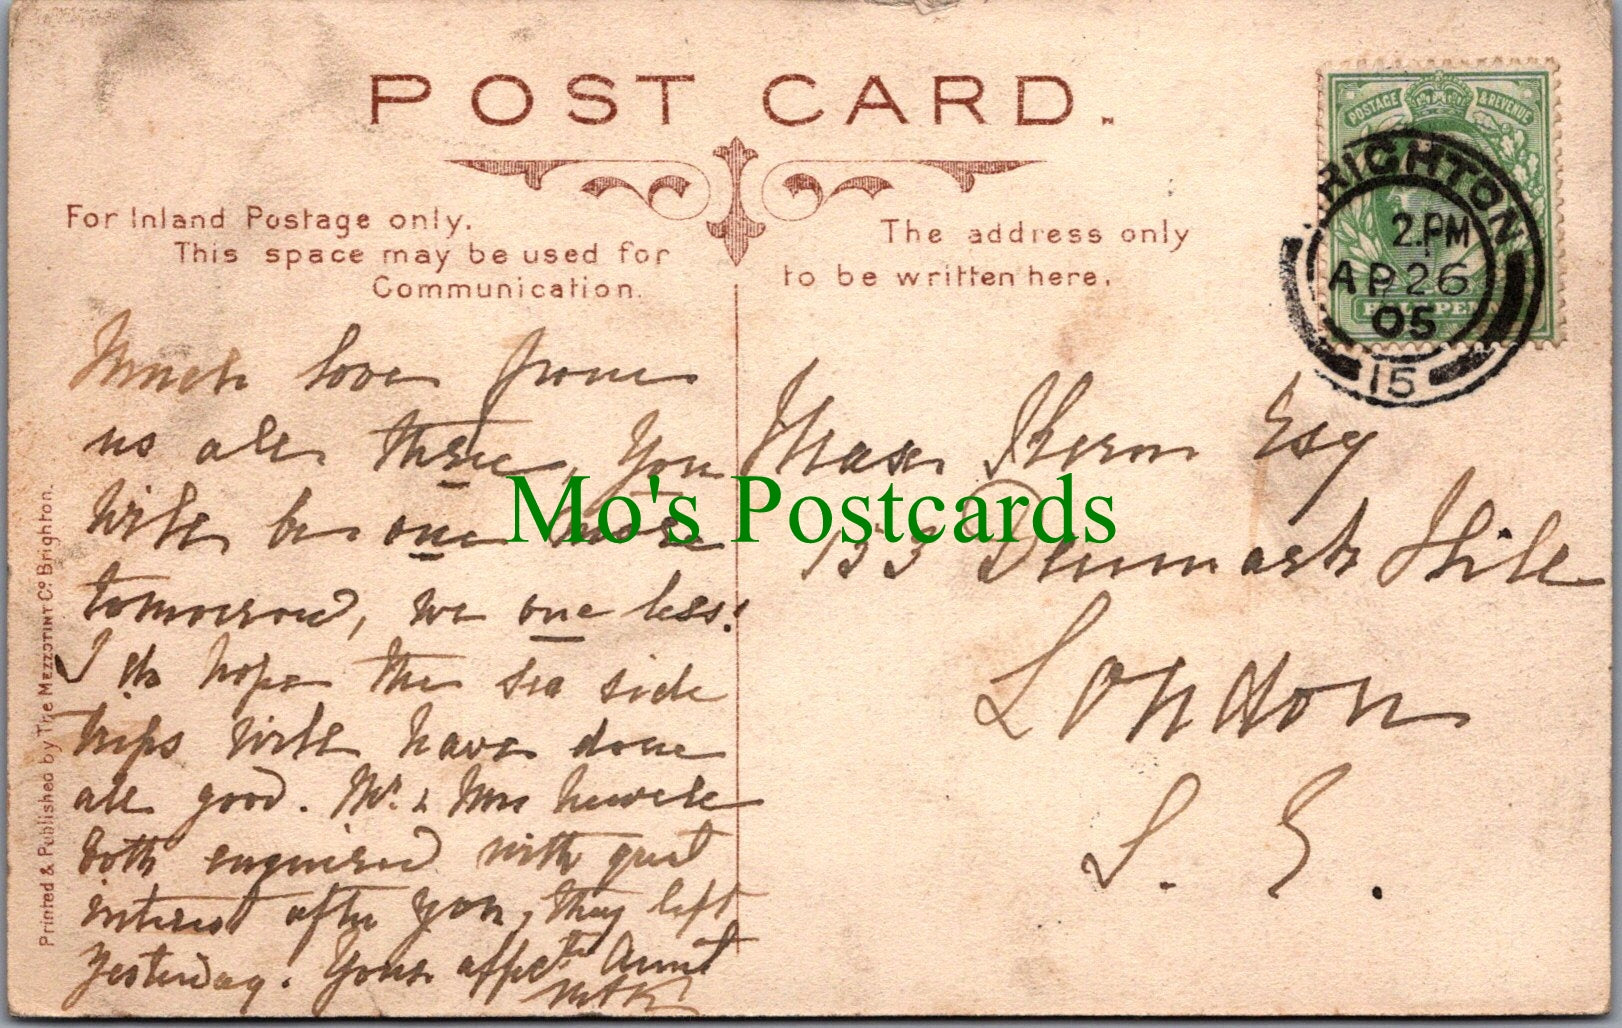 POST CARD.
For Inland Postage only.
This space may be used for
Communication.
The address only
to be written here.
POSTAGE & REVENUE
HALFPENNY
BRIGHTON
2.PM
AP 26
05
15
Much love from
us all three, You
will be one more
tomorrow, we one less!
I do hope the sea side
trips will have done
all good. Mr. & Mrs
both enquired with great
interest after you, they left
yesterday. Your affecte Aunt
Max Esq
133 Denmark Hill
London
S. E.
Printed & Published by The Mezzotint Co. Brighton.
Mo's Postcards